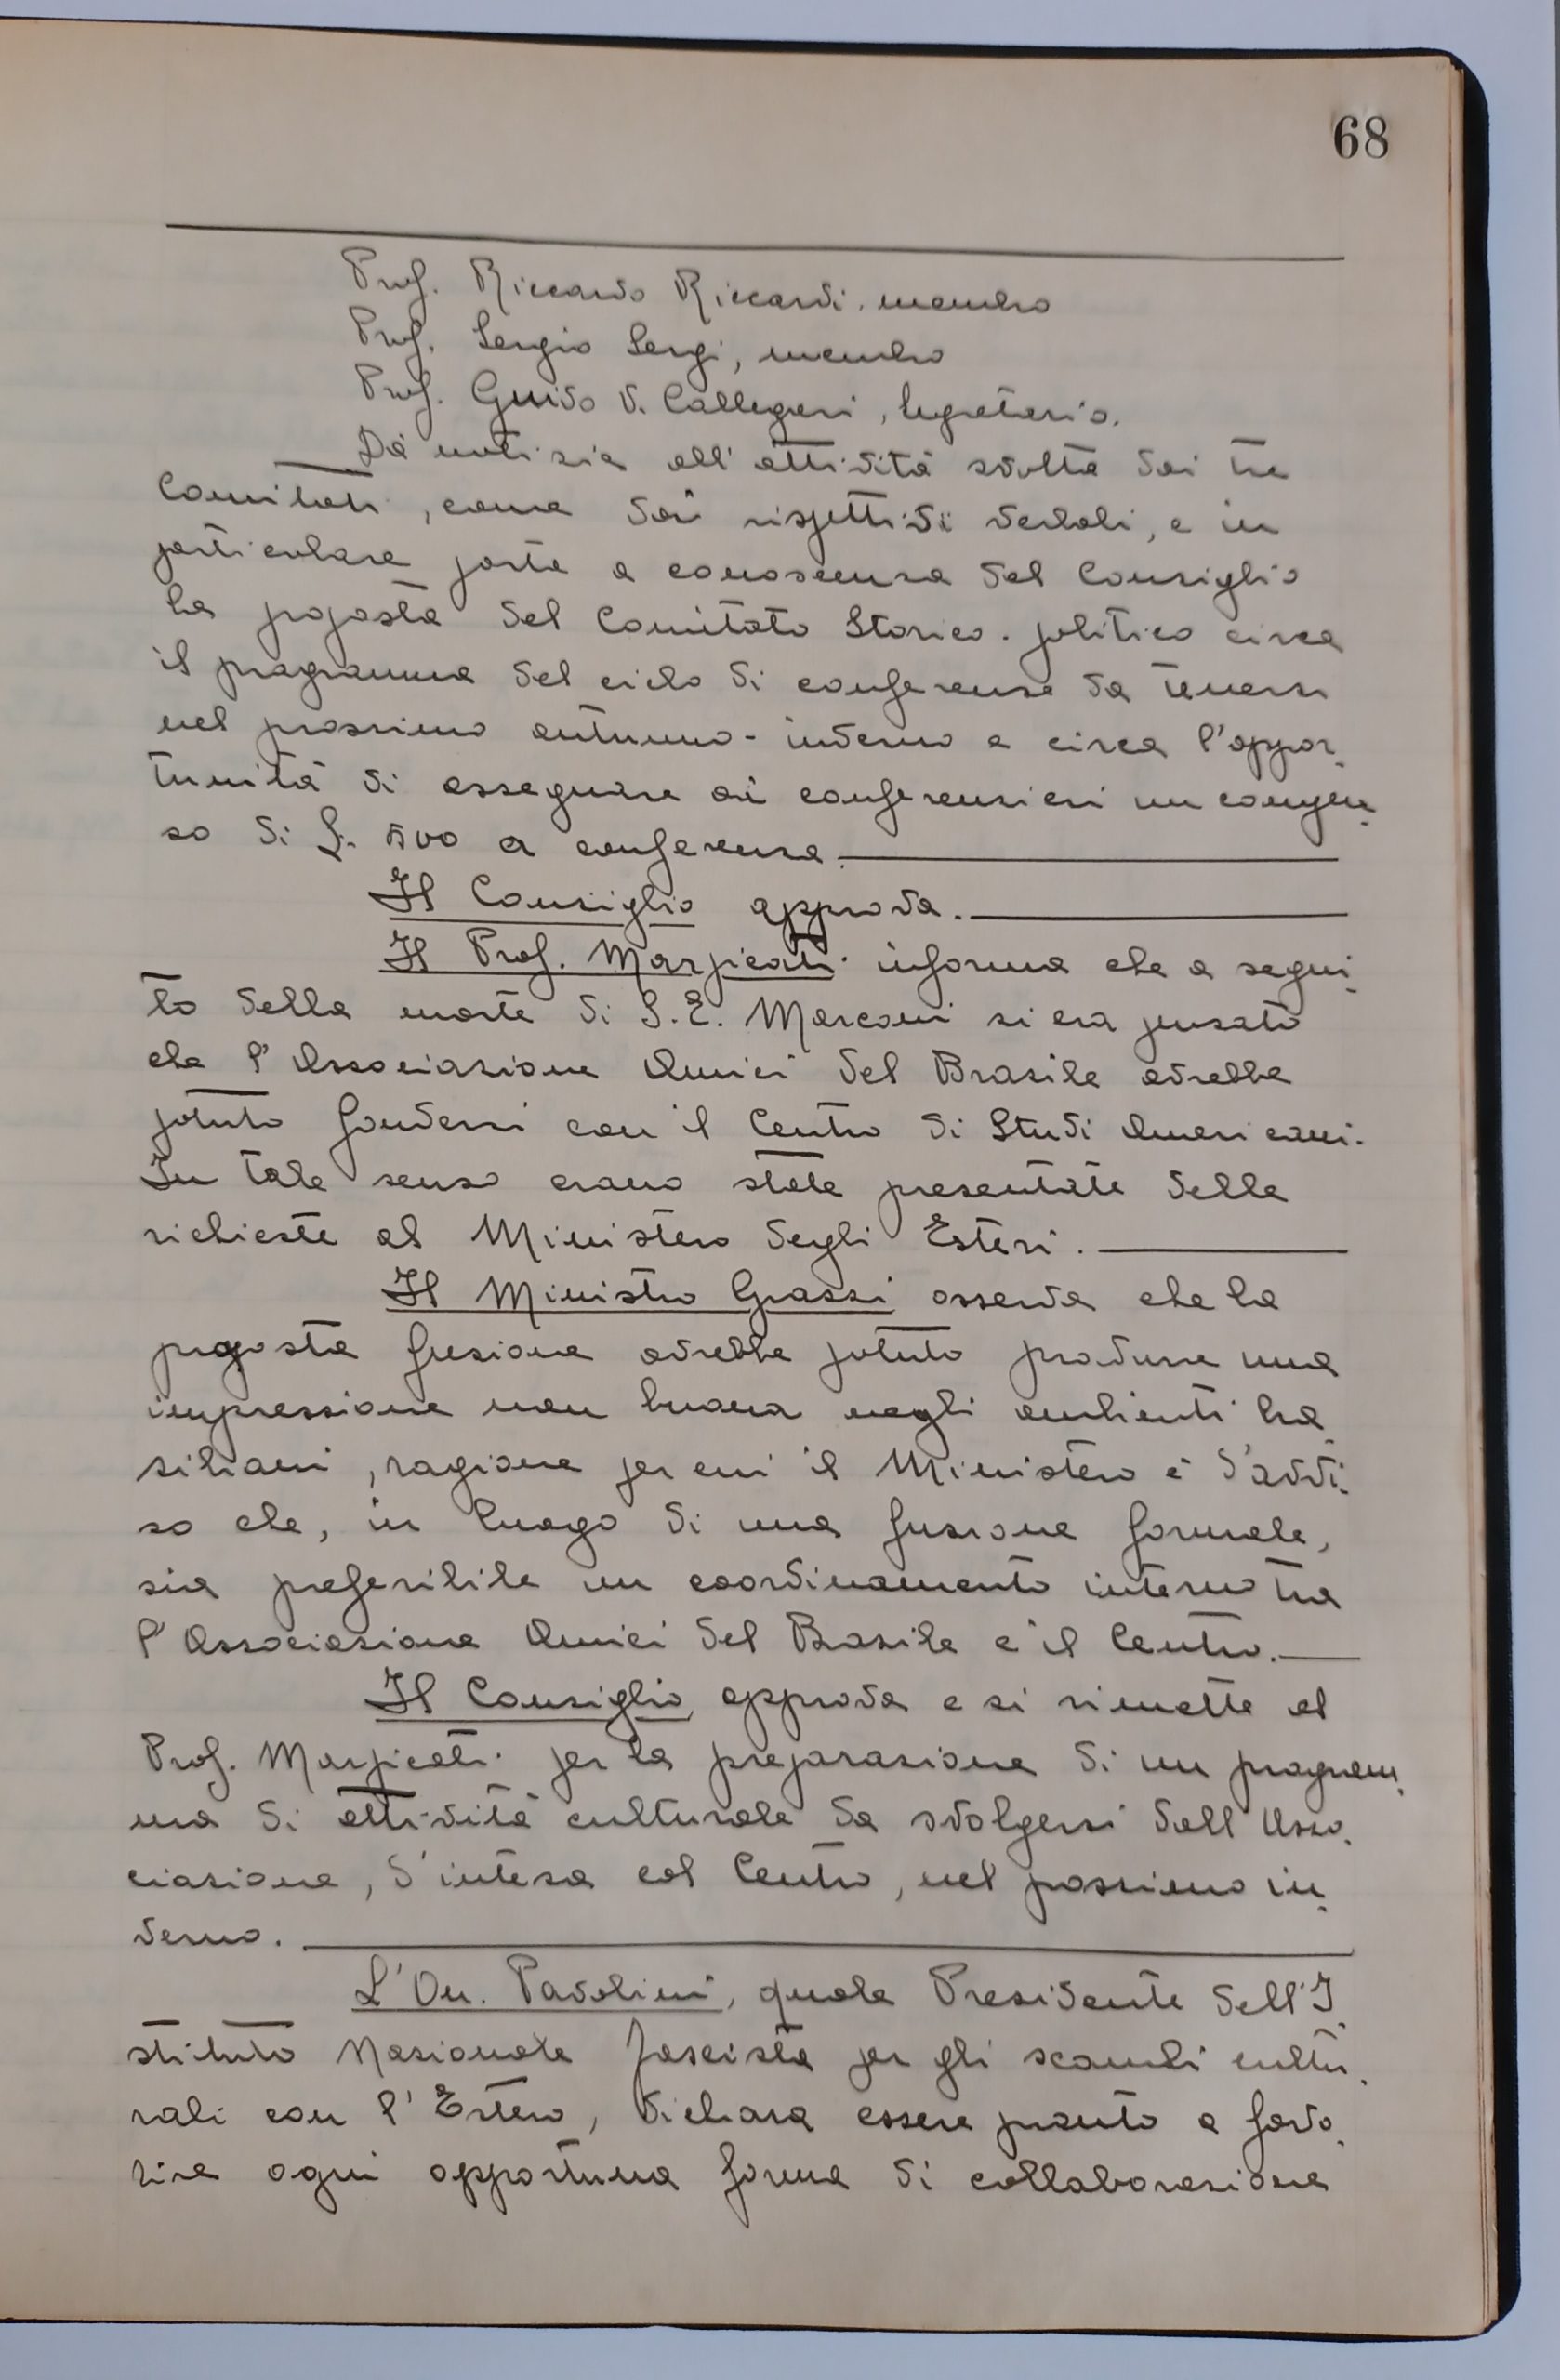 68
Prof. Riccardo Riccardi. membro
Prof. Sergio Sergi, membro
Prof. Guido V. Callegari, Segretario.
Dà notizia all'attività svolta dai tre
Comitati, come dai rispettivi verbali, e in
particolare porta a conoscenza del Consiglio
la proposta del Comitato Storico-politico circa
il programma del ciclo di conferenze da tenersi
nel prossimo autunno-inverno e circa l'oppor-
tunità di assegnare ai conferenzieri un compen-
so di L. 500 a conferenza.
Il Consiglio approva.
Il Prof. Marpicati informa che a segui-
to della morte di S.E. Marconi si era pensato
che l'Associazione Amici del Brasile avrebbe
potuto fondersi con il Centro di Studi Americani.
In tale senso erano state presentate delle
richieste al Ministero degli Esteri.
Il Ministro Grazzi osserva che la
proposta fusione avrebbe potuto produrre una
impressione non buona negli ambienti bra-
siliani, ragione per cui il Ministero è d'avvi-
so che, in luogo di una fusione formale,
sia preferibile un coordinamento interno tra
l'Associazione Amici del Brasile e il Centro.
Il Consiglio approva e si rimette al
Prof. Marpicati per la preparazione di un program-
ma di attività culturale da svolgersi dall'Asso-
ciazione, d'intesa col Centro, nel prossimo in-
verno.
L'On. Pavolini, quale Presidente dell'I-
stituto Nazionale fascista per gli scambi cultu-
rali con l'Estero, dichiara essere pronto a favo-
rire ogni opportuna forma di collaborazione